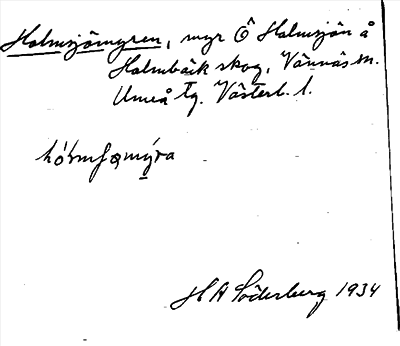 Holmsjömyren, myr Ö Holmsjön å
Holmbäck skog, Vännäs m.
Umeå tg. Västerb. l.
hólmʃǫmýra
H A Söderberg 1934